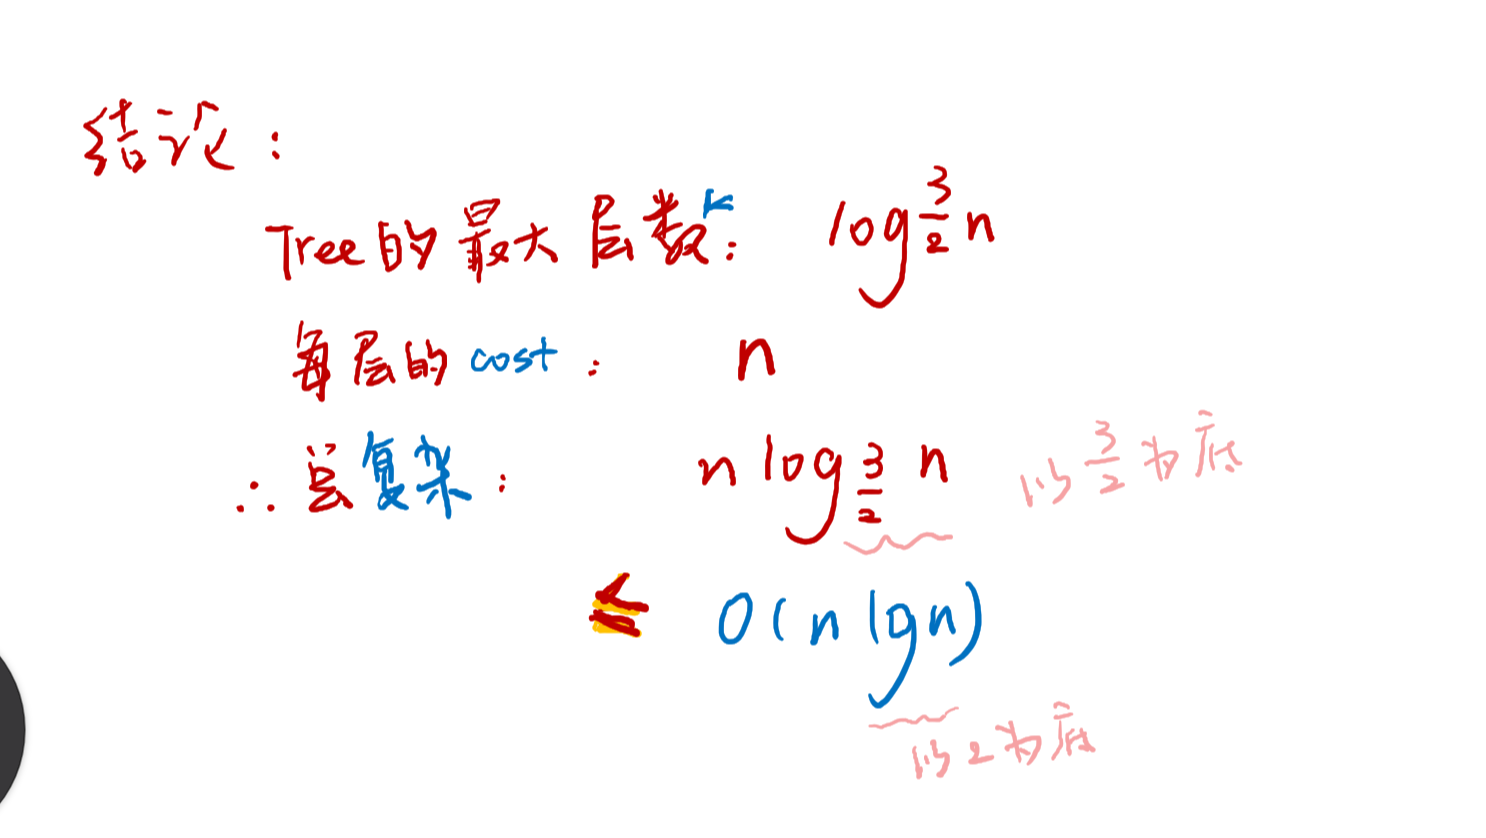 结论：
Tree的最大层数k： log 3/2 n
每层的cost： n
∴ 总复杂： n log 3/2 n 以 3/2 为底
≤ O(n lgn)
以2为底